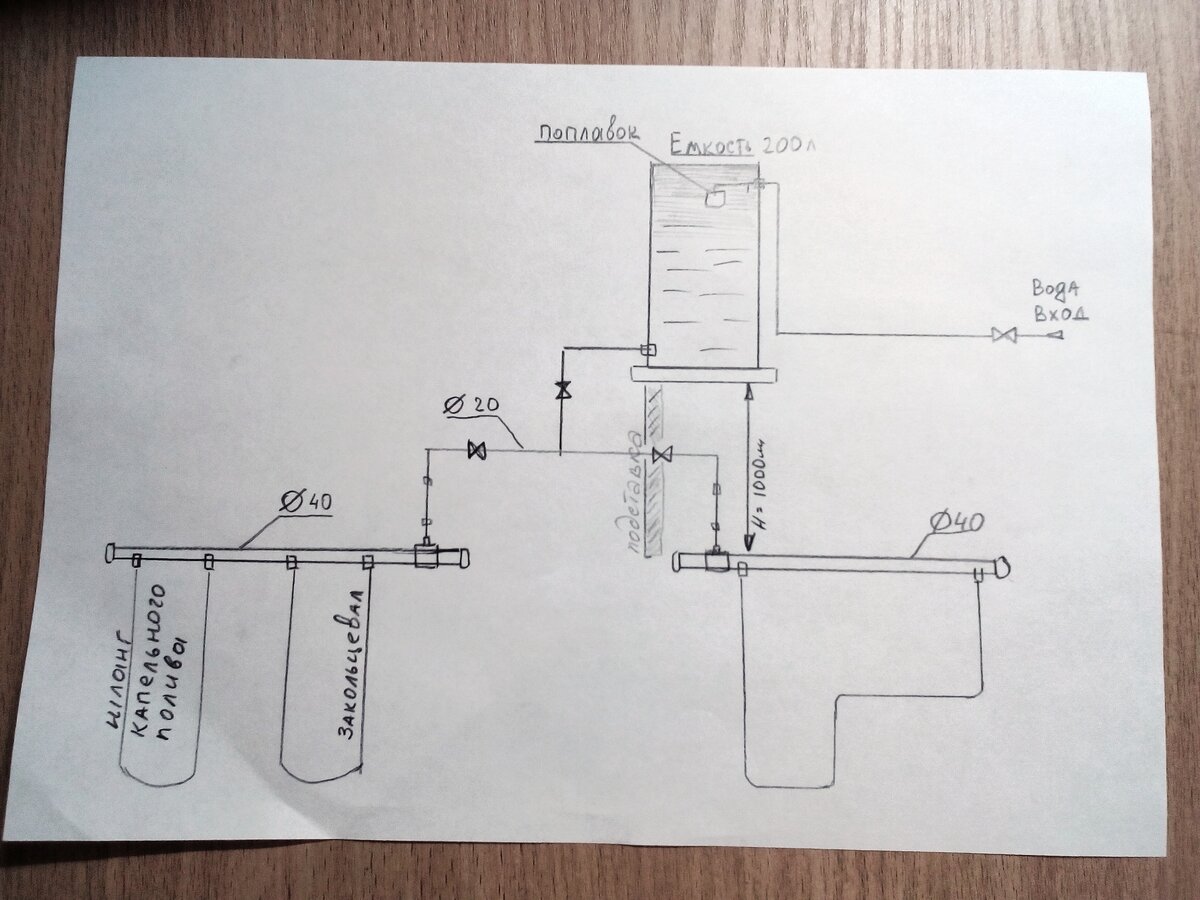 поплавок
Емкость 200л
Вода
Вход
Ø 20
подставка
H = 1000мм
Ø 40
Ø40
шланг
капельного
полива
закольцевал